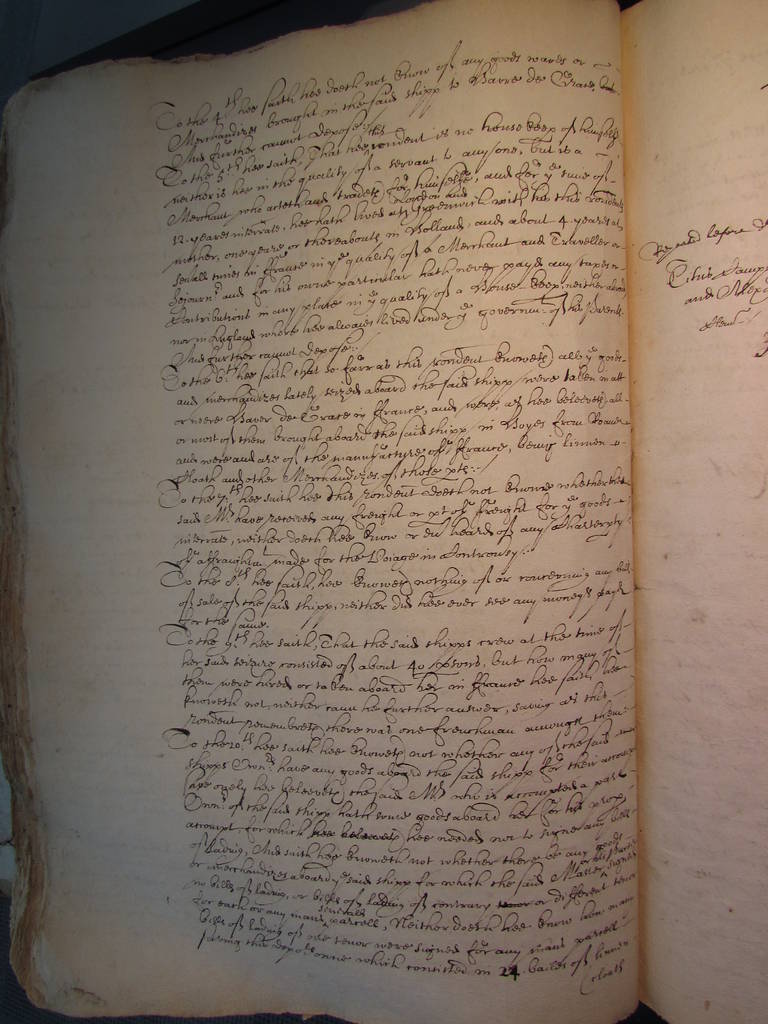 To the 4th hee saith hee doeth not know of any goods wares or
Merchandizes brought in the said shipp to Havre de Grace,
And further cannot depose./
To the 5th hee saith, That hee this rondent is no house keep of himselfe
neither is hee in the quality of a servant to any one, but is a
Merchant who acteth and tradeth for himselfe, and for ye time of
12 yeares interrate, hee hath lived at London and Greenwich with his this rondents
mother, one yeare or thereabouts in Holland, and about 4 yeares at
severall times in ffrance in ye quality of a Merchant and Traveller or
Sojourner and for his owne particular hath never payd any taxes or
Contributions in any place in ye quality of a House-keep, neither abroad
nor in England where hee alwaies lived under ye governmt of his Parents
And further cannot depose./
To the 6th hee saith that so farr as this rondent knoweth all ye goods
and merchandizes lately seized aboard the said shipp were taken in att
or neere Haver de Grace in ffrance, and were, as hee beleeveth all
or most of them brought aboard the said shipp in Hoyes from Roane
and were and are of the manufacture of ffrance, being linnen
Cloath and other Merchandizes of those pts./
To the 7th hee saith hee this rondent doeth not knowe whether the
said Mr have received any freight or pt of freight for ye goods
interrate, neither doeth hee know or did heare of any Charterparty
or affraightmt made for the Voiage in Controversy./
To the 8th hee saith, hee knoweth nothing of or concerning any bill
of sale of the said shipp, neither did hee ever see any moneys payd
for the same.
To the 9th hee saith, That the said shipps crew at the time of
her said seizure consisted of about 40 psons, but how many of
them were hired or taken aboard her in ffrance hee saith, hee
knoweth not, neither cann he further answer, saving as this
rondent remembreth there was one frenchman amongst them
To the 10th hee saith hee knoweth not whether any of the said
shipps Ownrs have any goods aboard the said shipp for their accompt
(save onely hee beleeveth) the said Mr who is accompted a part
Ownr of the said shipp hath some goods aboard her for his prop
accompt, for which hee beleeveth hee needed not to signe any bills
of lading, And saith hee knoweth not whether there bee any goods
or merchandizes aboard ye said shipp for which the said Master signed
no bills of lading, or bills of lading of contrary or different tenor
for each or any mans severall parcell, Neither doeth hee know how many
bills of lading of one tenor were signed for any mans parcell
saving this depots owne which consisted in 24 bailes of linnen
cloath
Repeated before
and